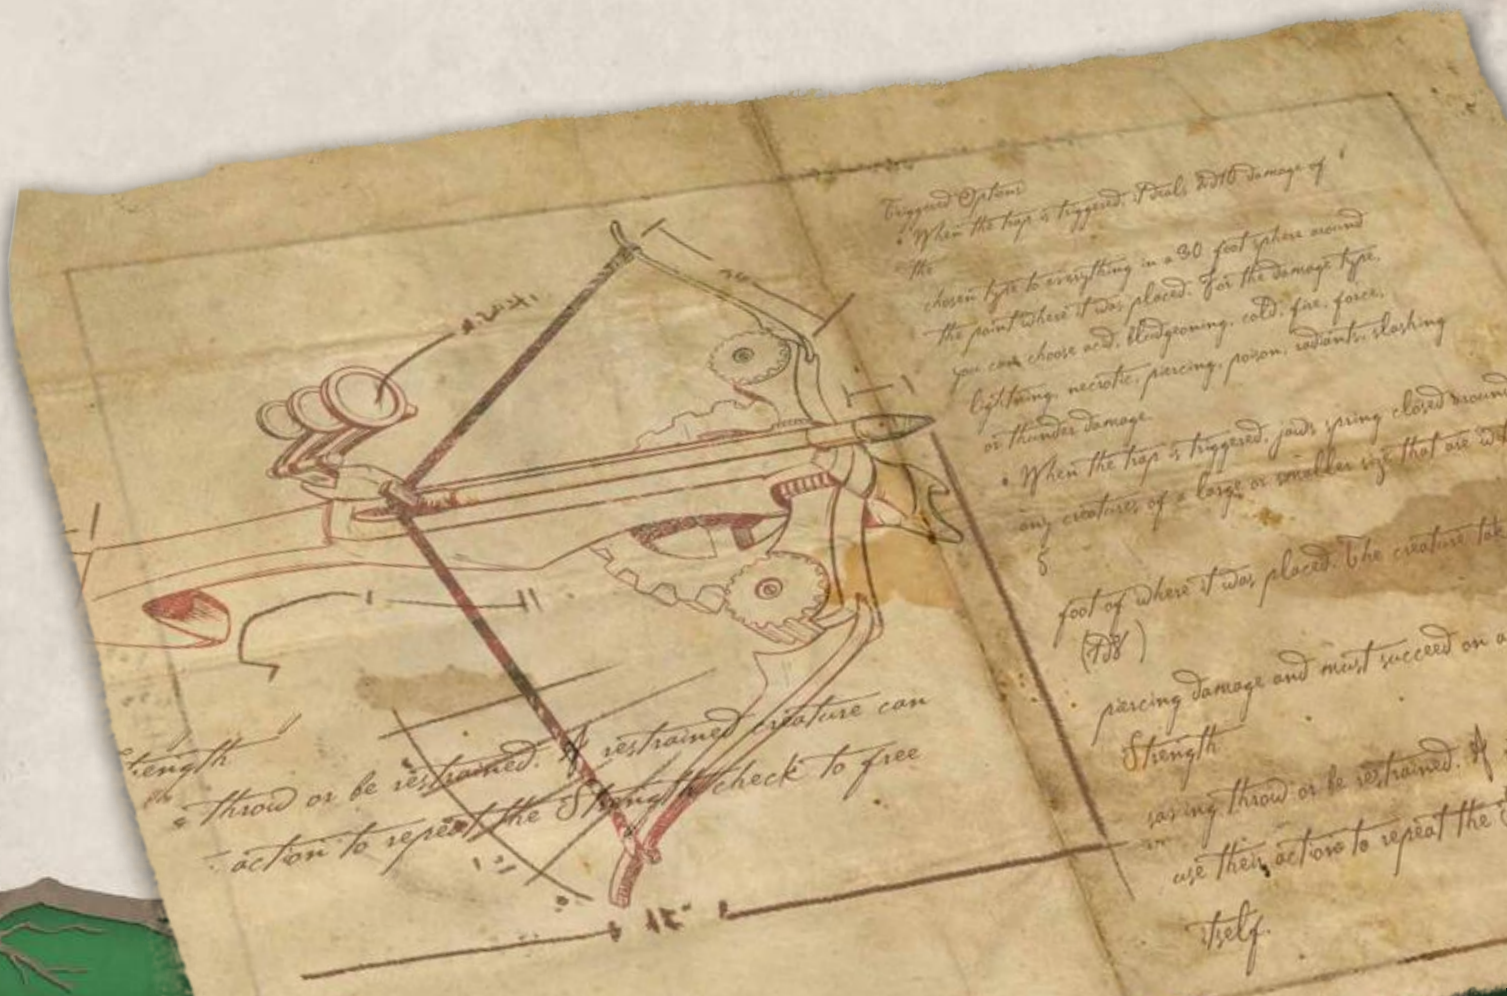 Triggered Options
• When the trap is triggered, it deals damage of
the
chosen type to everything in a 30 foot sphere around
the point where it was placed. For the damage type,
you can choose acid, bludgeoning, cold, fire, force,
lightning, necrotic, piercing, poison, radiants, slashing
or thunder damage.
• When the trap is triggered, jaws spring closed around
any creatures of a large or smaller size that are
5
foot of where it was placed. The creature
piercing damage and must succeed on a
Strength
saving throw or be restrained. A
use their action to repeat the
itself.
throw or be restrained. A restrained creature can
action to repeat the Strength check to free